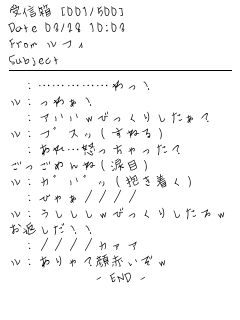 受信箱 [001/500]
Date 08/28 10:08
From ルフィ
Subject
：……………わっ！
ル：っわぁ！
：アハハwびっくりしたぁて
ル：プスッ(すねる)
：あれ…怒っちゃったて
ごっごめんね(涙目)
ル：ガバッ(抱き着く)
：ひゃぁ////
ル：うししwびっくりしたかw
お返しだ！！
：////カァァ
ル：ありゃて顔赤いぞw
- END -